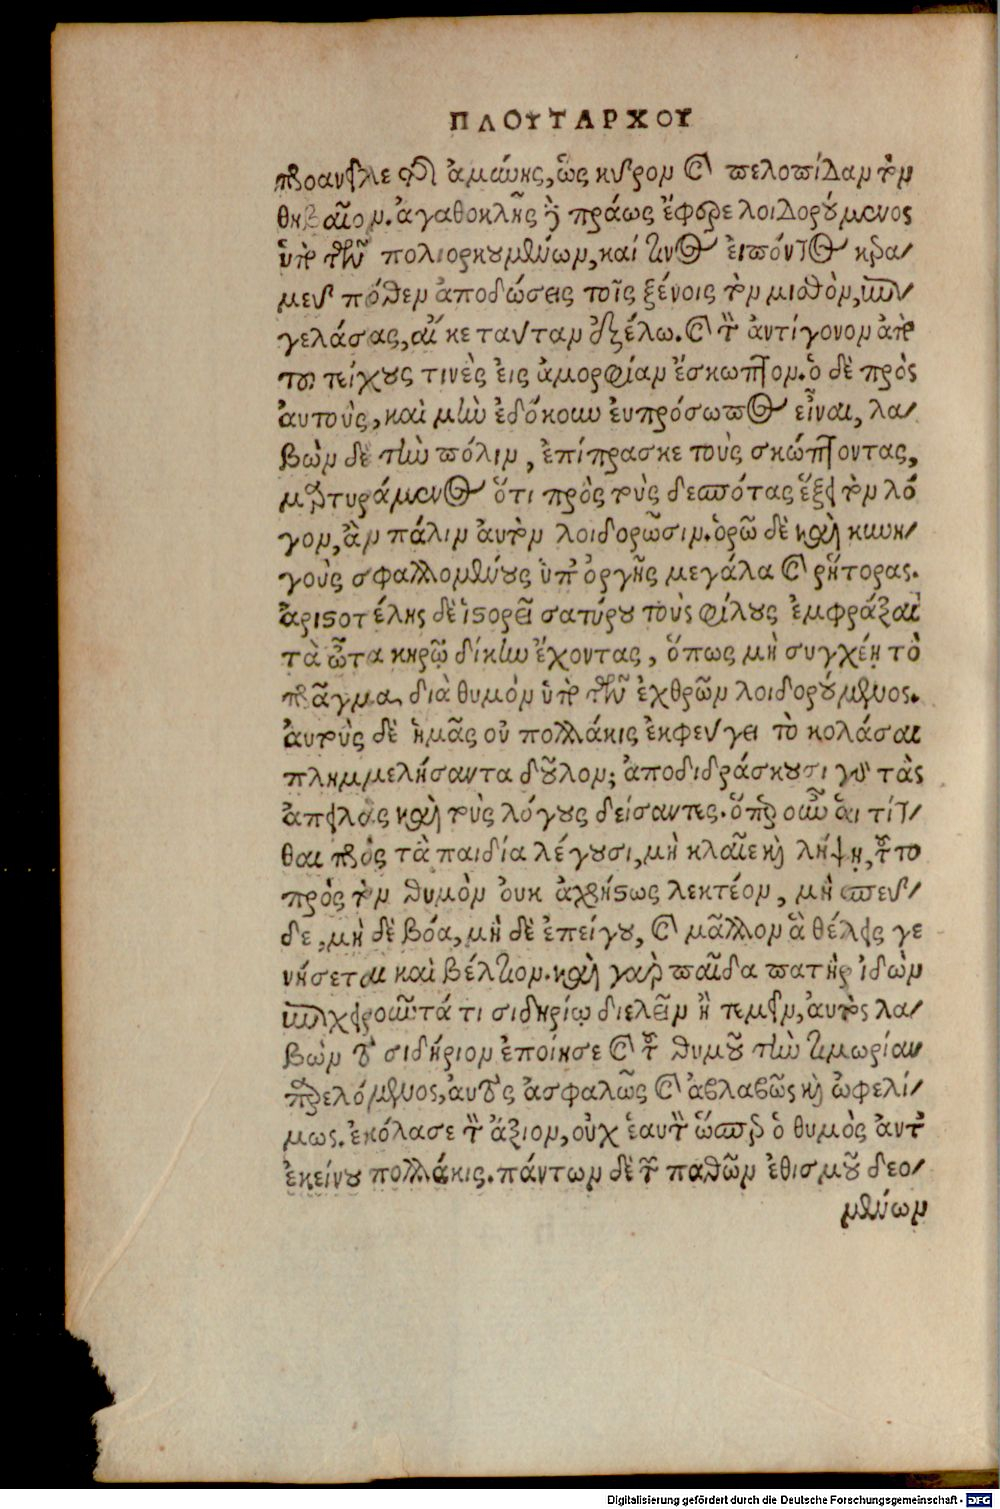 ΠΛΟΥΤΑΡΧΟΥ
προανεῖλε διὰ μάχης, ὡς κῦρον καὶ πελοπίδαν τὸν
θηβαῖον. ἀγαθοκλῆς δὲ πράως ἔφερε λοιδορούμενος
ὑπὸ τῶν πολιορκουμένων, καί τινος εἰπόντος κερα/
μεῦ πόθεν ἀποδώσεις τοῖς ξένοις τὸν μισθὸν, ἐπι/
γελάσας, αἴκε ταύταν ἐξέλω. καὶ τὸν ἀντίγονον ἀπὸ
τοῦ τείχους τινὲς εἰς ἀμορφίαν ἔσκωπτον. ὁ δὲ πρὸς
ἀυτοὺς, καὶ μὴν ἐδόκουν ἐυπρόσωπος εἶναι, λα/
βὼν δὲ τὴν πόλιν, ἐπίπρασκε τοὺς σκώπτοντας,
μαρτυράμενος ὅτι πρὸς τοὺς δεσπότας ἕξει τὸν λό
γον, ἂν πάλιν ἀυτὸν λοιδορῶσιν. ὁρῶ δὲ καὶ κυνη/
γοὺς σφαλλομένους ὑπ' ὀργῆς μεγάλα καὶ ῥήτορας.
ἀριστοτέλης δὲ ἱστορεῖ σατύρου τοὺς φίλους ἐμφράξαι
τὰ ὦτα κηρῷ δίκην ἔχοντας, ὅπως μὴ συγχέῃ τὸ
πρᾶγμα διὰ θυμὸν ὑπὸ τῶν ἐχθρῶν λοιδορούμενος.
ἀυτοὺς δὲ ἡμᾶς οὐ πολλάκις ἐκφεύγει τὸ κολάσαι
πλημμελήσαντα δοῦλον; ἀποδιδράσκουσι γὰρ τὰς
ἀπειλὰς καὶ τοὺς λόγους δείσαντες. ὅπερ οὖν ἁι τίτ/
θαι πρὸς τὰ παιδία λέγουσι, μὴ κλαῖε καὶ λήψῃ, τοῦτο
πρὸς τὸν θυμὸν ὀυκ ἀχρήστως λεκτέον, μὴ σπεῦ/
δε, μὴ δὲ βόα, μὴ δὲ ἐπείγου, καὶ μᾶλλον ἃ θέλεις γε
νήσεται καὶ βέλτιον. καὶ γὰρ παῖδα πατὴρ ἰδὼν
ἐπιχειροῦντά τι σιδηρίῳ διελεῖν ἢ τεμεῖν, ἀυτὸς λα/
βὼν τὸ σιδήριον ἐποίησε καὶ τοῦ θυμοῦ τὴν τιμωρίαν
παρελόμενος, ἀυτὸς ἀσφαλῶς καὶ ἀβλαβῶς καὶ ὠφελί/
μως. ἐκόλασε τὸν ἄξιον, οὐχ ἑαυτὸν ὥσπερ ὁ θυμὸς ἀντ'
ἐκείνου πολλάκις. πάντων δὲ τῶν παθῶν ἐθισμοῦ δεο/
μένων
Digitalisierung gefördert durch die Deutsche Forschungsgemeinschaft - DFG